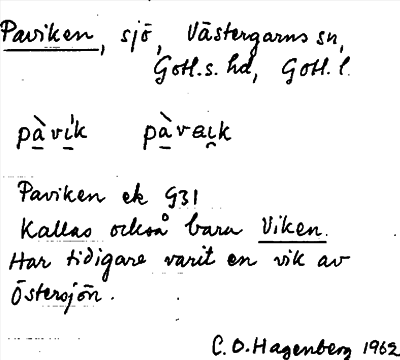 Paviken, sjö, Västergarns sn,
Gotl. s. hd, Gotl. l.
pàvik pàvaik
Paviken ek G31
Kallas också bara Viken.
Har tidigare varit en vik av
Östersjön.
C. O. Hagenberg 1962